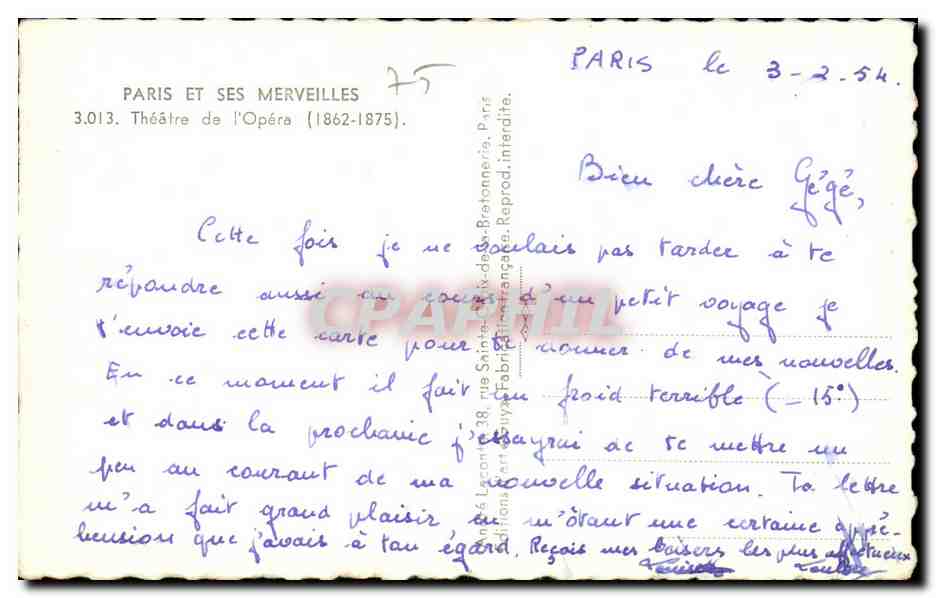 75
PARIS ET SES MERVEILLES
3.013. Théâtre de l'Opéra (1862-1875).
PARIS le 3-2-54.
Bien chère Gégé,
Cette fois je ne voulais pas tarder à te
répondre aussi au cours d'un petit voyage je
t'envoie cette carte pour te donner de mes nouvelles.
En ce moment il fait un froid terrible (-15°)
et dans la prochaine j'essayrai de te mettre un
peu au courant de ma nouvelle situation. Ta lettre
m'a fait grand plaisir en m'ôtant une certaine appré-
hension que j'avais à ton égard. Reçois mes baisers les plus affectueux
André Leconte, 38, rue Sainte-Croix-de-la-Bretonnerie, Paris
Editions d'art Fabrication française. Reprod. interdite.
CPAPHIL